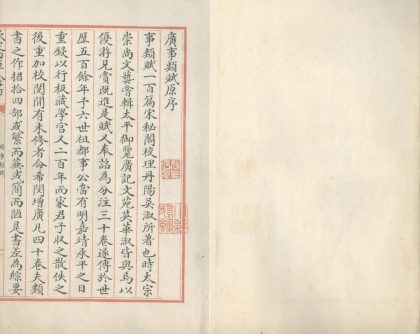 廣事類賦原序
事類賦一百篇宋秘閣校理丹陽吳淑所著也時太宗
崇尚文藝嘗輯太平御覽廣記文苑英華淑皆與焉以
優游見賞既進是賦又奉詔為分注三十卷遂傳於世
歴五百餘年予六世祖都事公當有明嘉靖承平之日
重鋟以行板藏學宫又二百年而家君子収之散佚之
後重加校閱閒有未修者命希閔增廣凡四十卷夫類
書之作捃拾四部或繁而蕪或簡而陋是書差為綜要